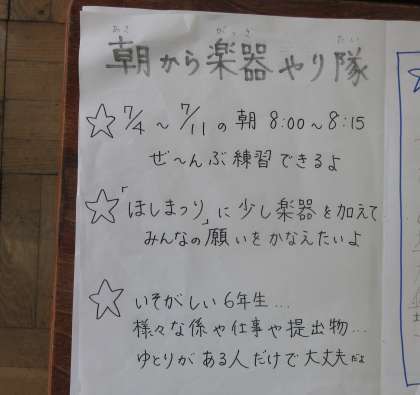 朝から楽器やり隊
あさ がっき たい
☆ 7/4 ～ 7/11 の 朝 8:00～8:15
ぜ～んぶ練習できるよ
☆「ほしまつり」に少し楽器を加えて
みんなの願いをかなえたいよ
☆ いそがしい6年生...
様々な係や仕事や提出物...
ゆとりがある人だけで大丈夫だよ